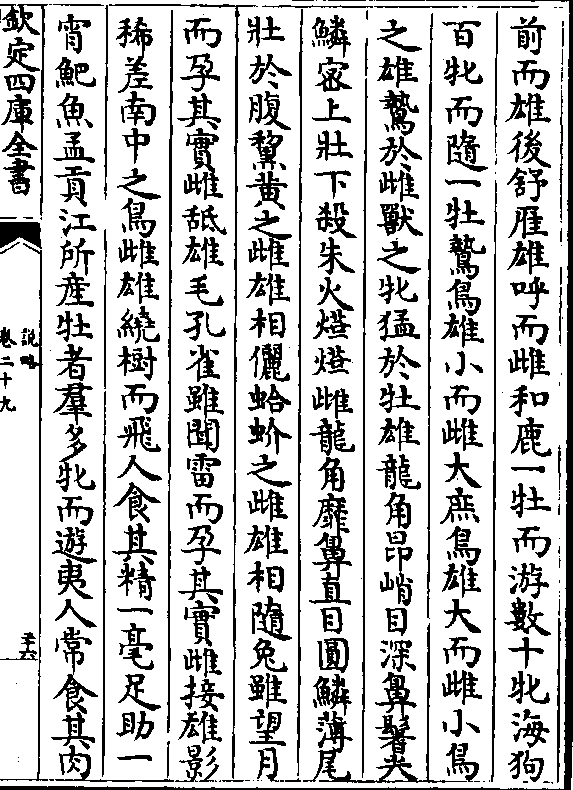 前而雄後舒雁雄呼而雌和鹿一牡而游數十牝海狗
百牝而隨一牡鷙鳥雄小而雌大庶鳥雄大而雌小鳥
之雄鷙於雌獸之牝猛於牡雄龍角昂峭目深鼻鬐尖
鱗宻上壯下殺朱火熖熖雌龍角靡鼻直目圓鱗薄尾
壯於腹䵩黄之雌雄相儷蛤蚧之雌雄相隨兔雖望月
而孕其實雌舐雄毛孔雀雖聞雷而孕其實雌接雄影
稀差南中之鳥雌雄繞樹而飛人食其精一毫足助一
宵魮魚孟貢江所産牡者羣多牝而遊夷人常食其肉
欽定四庫全書
説略
卷二十九